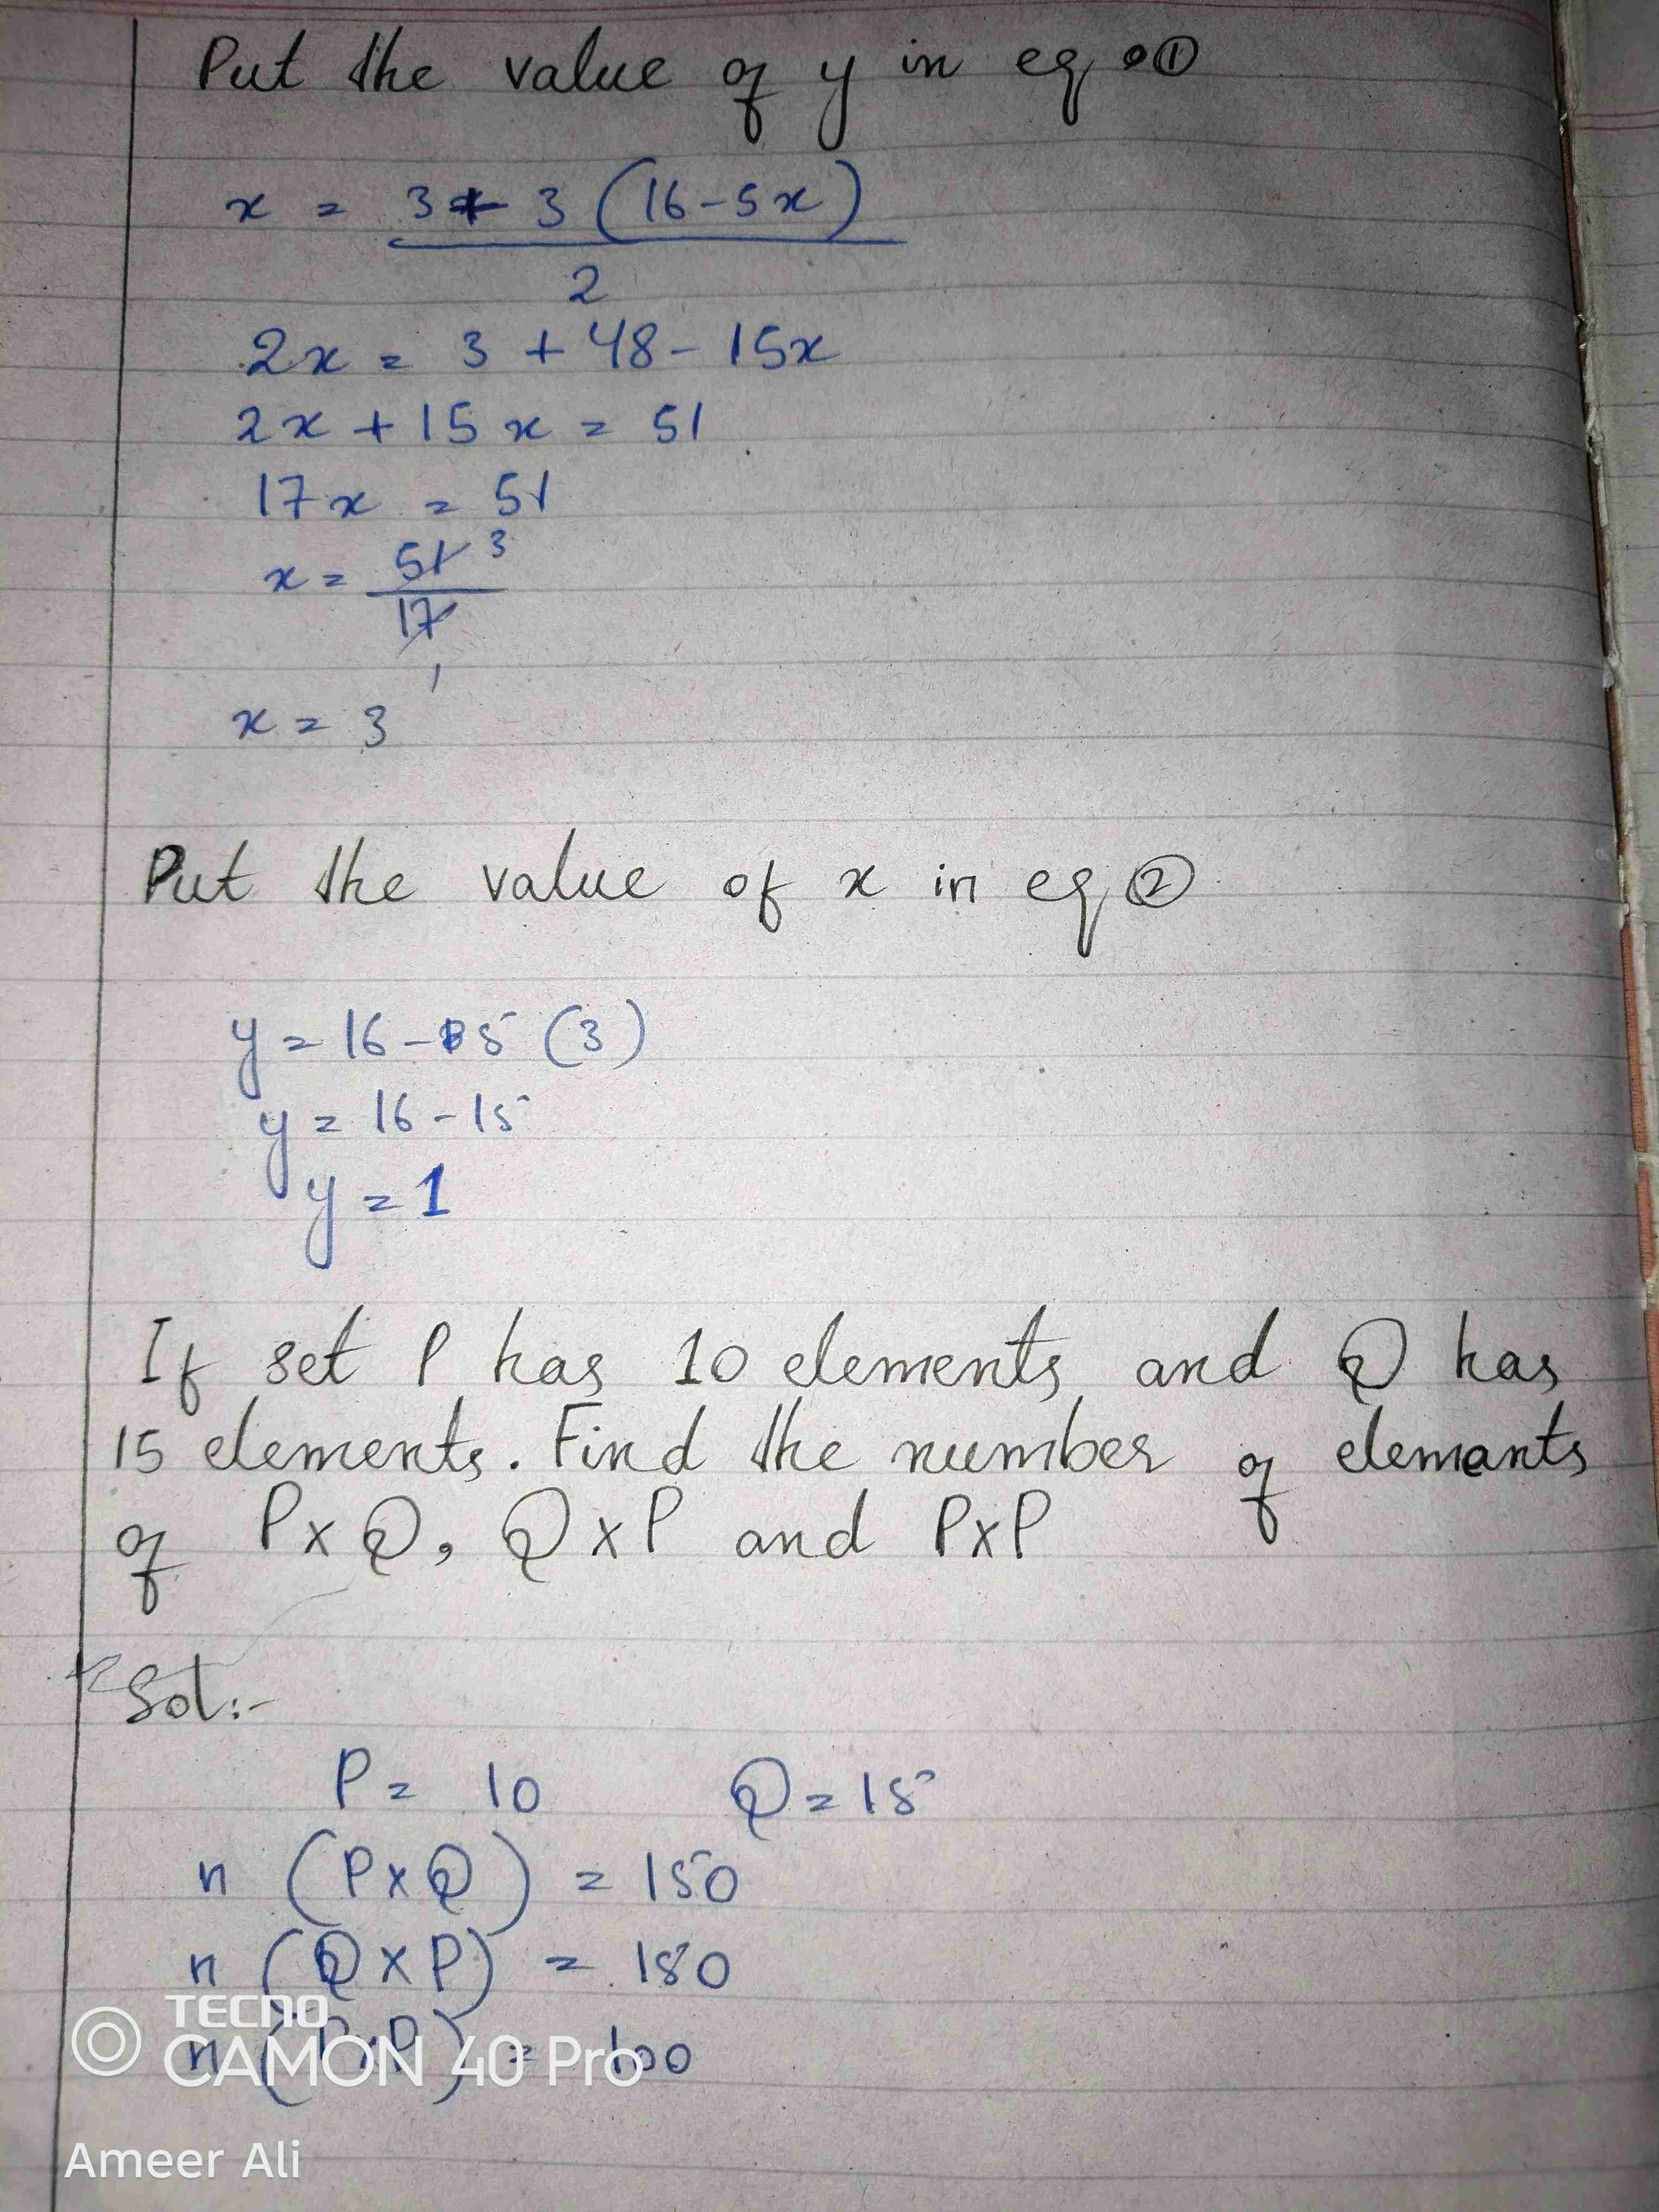 Put the value of y in eq ①
x = 3 + 3 (16-5x)
2
2x = 3 + 48 - 15x
2x + 15x = 51
17x = 51
x = 51 3
17
1
x = 3
Put the value of x in eq ②
y = 16 - 5 (3)
y = 16 - 15
y = 1
If set P has 10 elements and Q has
15 elements. Find the number of elements
of P x Q, Q x P and P x P
Sol:-
P = 10 Q = 15
n (P x Q) = 150
n (Q x P) = 150
n (P x P) = 100
TECNO
CAMON 40 Pro
Ameer Ali